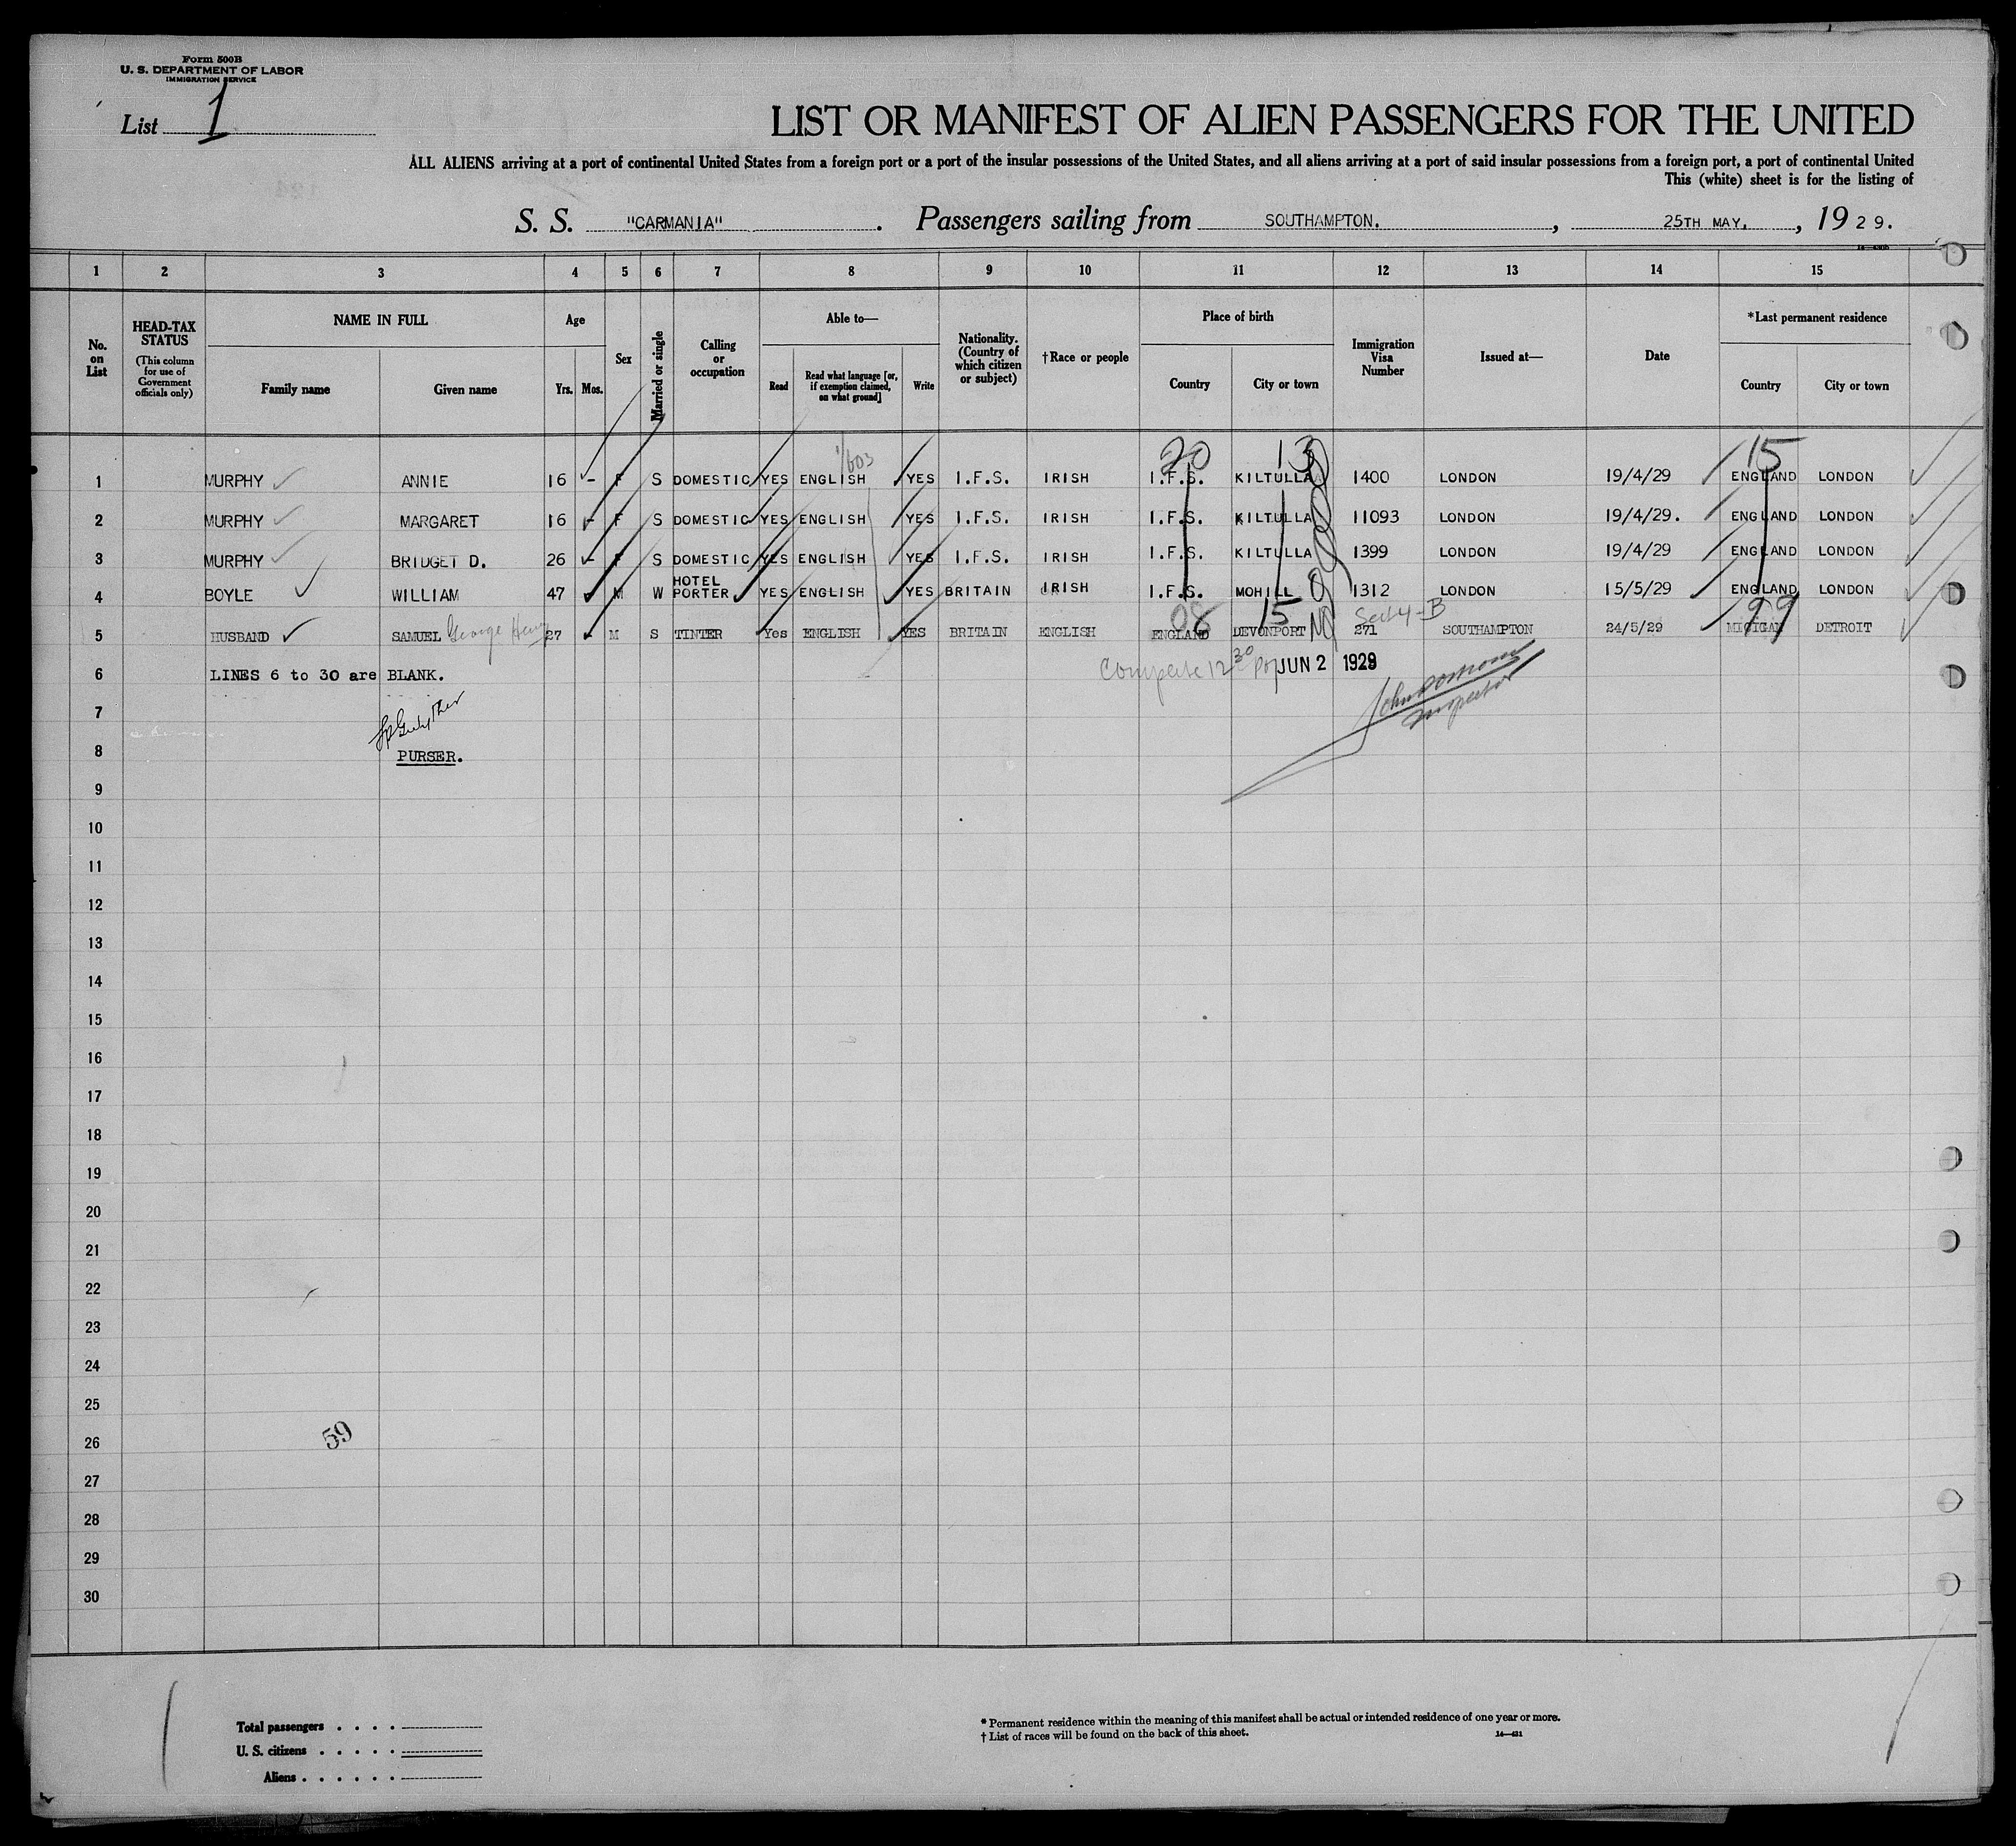 Form 500B
U. S. DEPARTMENT OF LABOR
IMMIGRATION SERVICE
List 1
LIST OR MANIFEST OF ALIEN PASSENGERS FOR THE UNITED
ALL ALIENS arriving at a port of continental United States from a foreign port or a port of the insular possessions of the United States, and all aliens arriving at a port of said insular possessions from a foreign port, a port of continental United
This (white) sheet is for the listing of
S. S. "CARMANIA" . Passengers sailing from SOUTHAMPTON. , 25TH MAY. , 1929.
1 2 3 4 5 6 7 8 9 10 11 12 13 14 15
No. on List
HEAD-TAX STATUS (This column for use of Government officials only)
NAME IN FULL
Family name Given name
Age
Yrs. Mos.
Sex
Married or single
Calling or occupation
Able to—
Read Read what language [or, if exemption claimed, on what ground] Write
Nationality. (Country of which citizen or subject)
†Race or people
Place of birth
Country City or town
Immigration Visa Number
Issued at—
Date
*Last permanent residence
Country City or town
20 13 15
1/603
1 MURPHY ANNIE 16 - F S DOMESTIC YES ENGLISH YES I.F.S. IRISH I.F.S. KILTULLA 1400 LONDON 19/4/29 ENGLAND LONDON
2 MURPHY MARGARET 16 - F S DOMESTIC YES ENGLISH YES I.F.S. IRISH I.F.S. KILTULLA 11093 LONDON 19/4/29. ENGLAND LONDON
3 MURPHY BRIDGET D. 26 - F S DOMESTIC YES ENGLISH YES I.F.S. IRISH I.F.S. KILTULLA 1399 LONDON 19/4/29 ENGLAND LONDON
4 BOYLE WILLIAM 47 M W HOTEL PORTER YES ENGLISH YES BRITAIN IRISH I.F.S. MOHILL 1312 LONDON 15/5/29 ENGLAND LONDON
08 15 Sec 4-B 99
5 HUSBAND SAMUEL George Henry 27 - M S TINTER Yes ENGLISH YES BRITAIN ENGLISH ENGLAND DEVONPORT 271 SOUTHAMPTON 24/5/29 MICIGAN DETROIT
6 LINES 6 to 30 are BLANK. JUN 2 1929
7 Inspector
8 PURSER.
9
10
11
12
13
14
15
16
17
18
19
20
21
22
23
24
25
26 59
27
28
29
30
Total passengers . . . .
U. S. citizens . . . . .
Aliens . . . . . .
* Permanent residence within the meaning of this manifest shall be actual or intended residence of one year or more.
† List of races will be found on the back of this sheet.